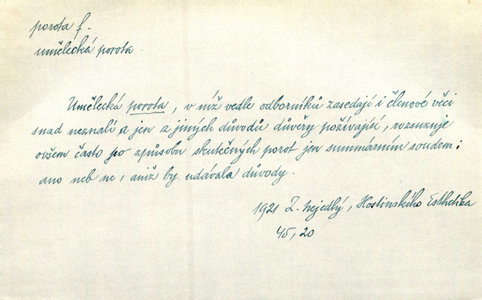 porota f.
umělecká porota.
Umělecká porota, v níž vedle odborníků zasedají i členové věci
snad neznalí a jen z jiných důvodů důvěry požívající, rozsuzuje
ovšem často po způsobu skutečných porot jen summárním soudem:
ano neb ne, aniž by udávala důvody.
1921 Z. Nejedlý, Hostinského Esthetika
45, 20